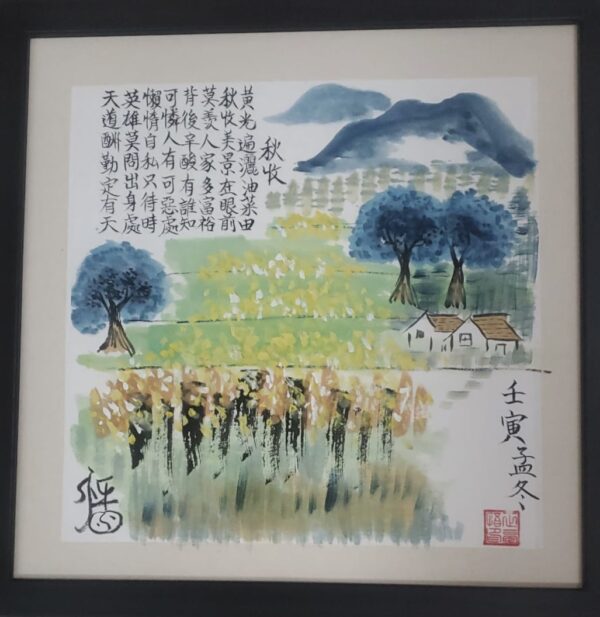 秋收
黃光遍灑油菜田
秋收美景在眼前
莫羨人家多富裕
背後辛酸有誰知
可憐人有可惡處
懶惰自私只待時
英雄莫問出身處
天道酬勤定有天
壬寅孟冬